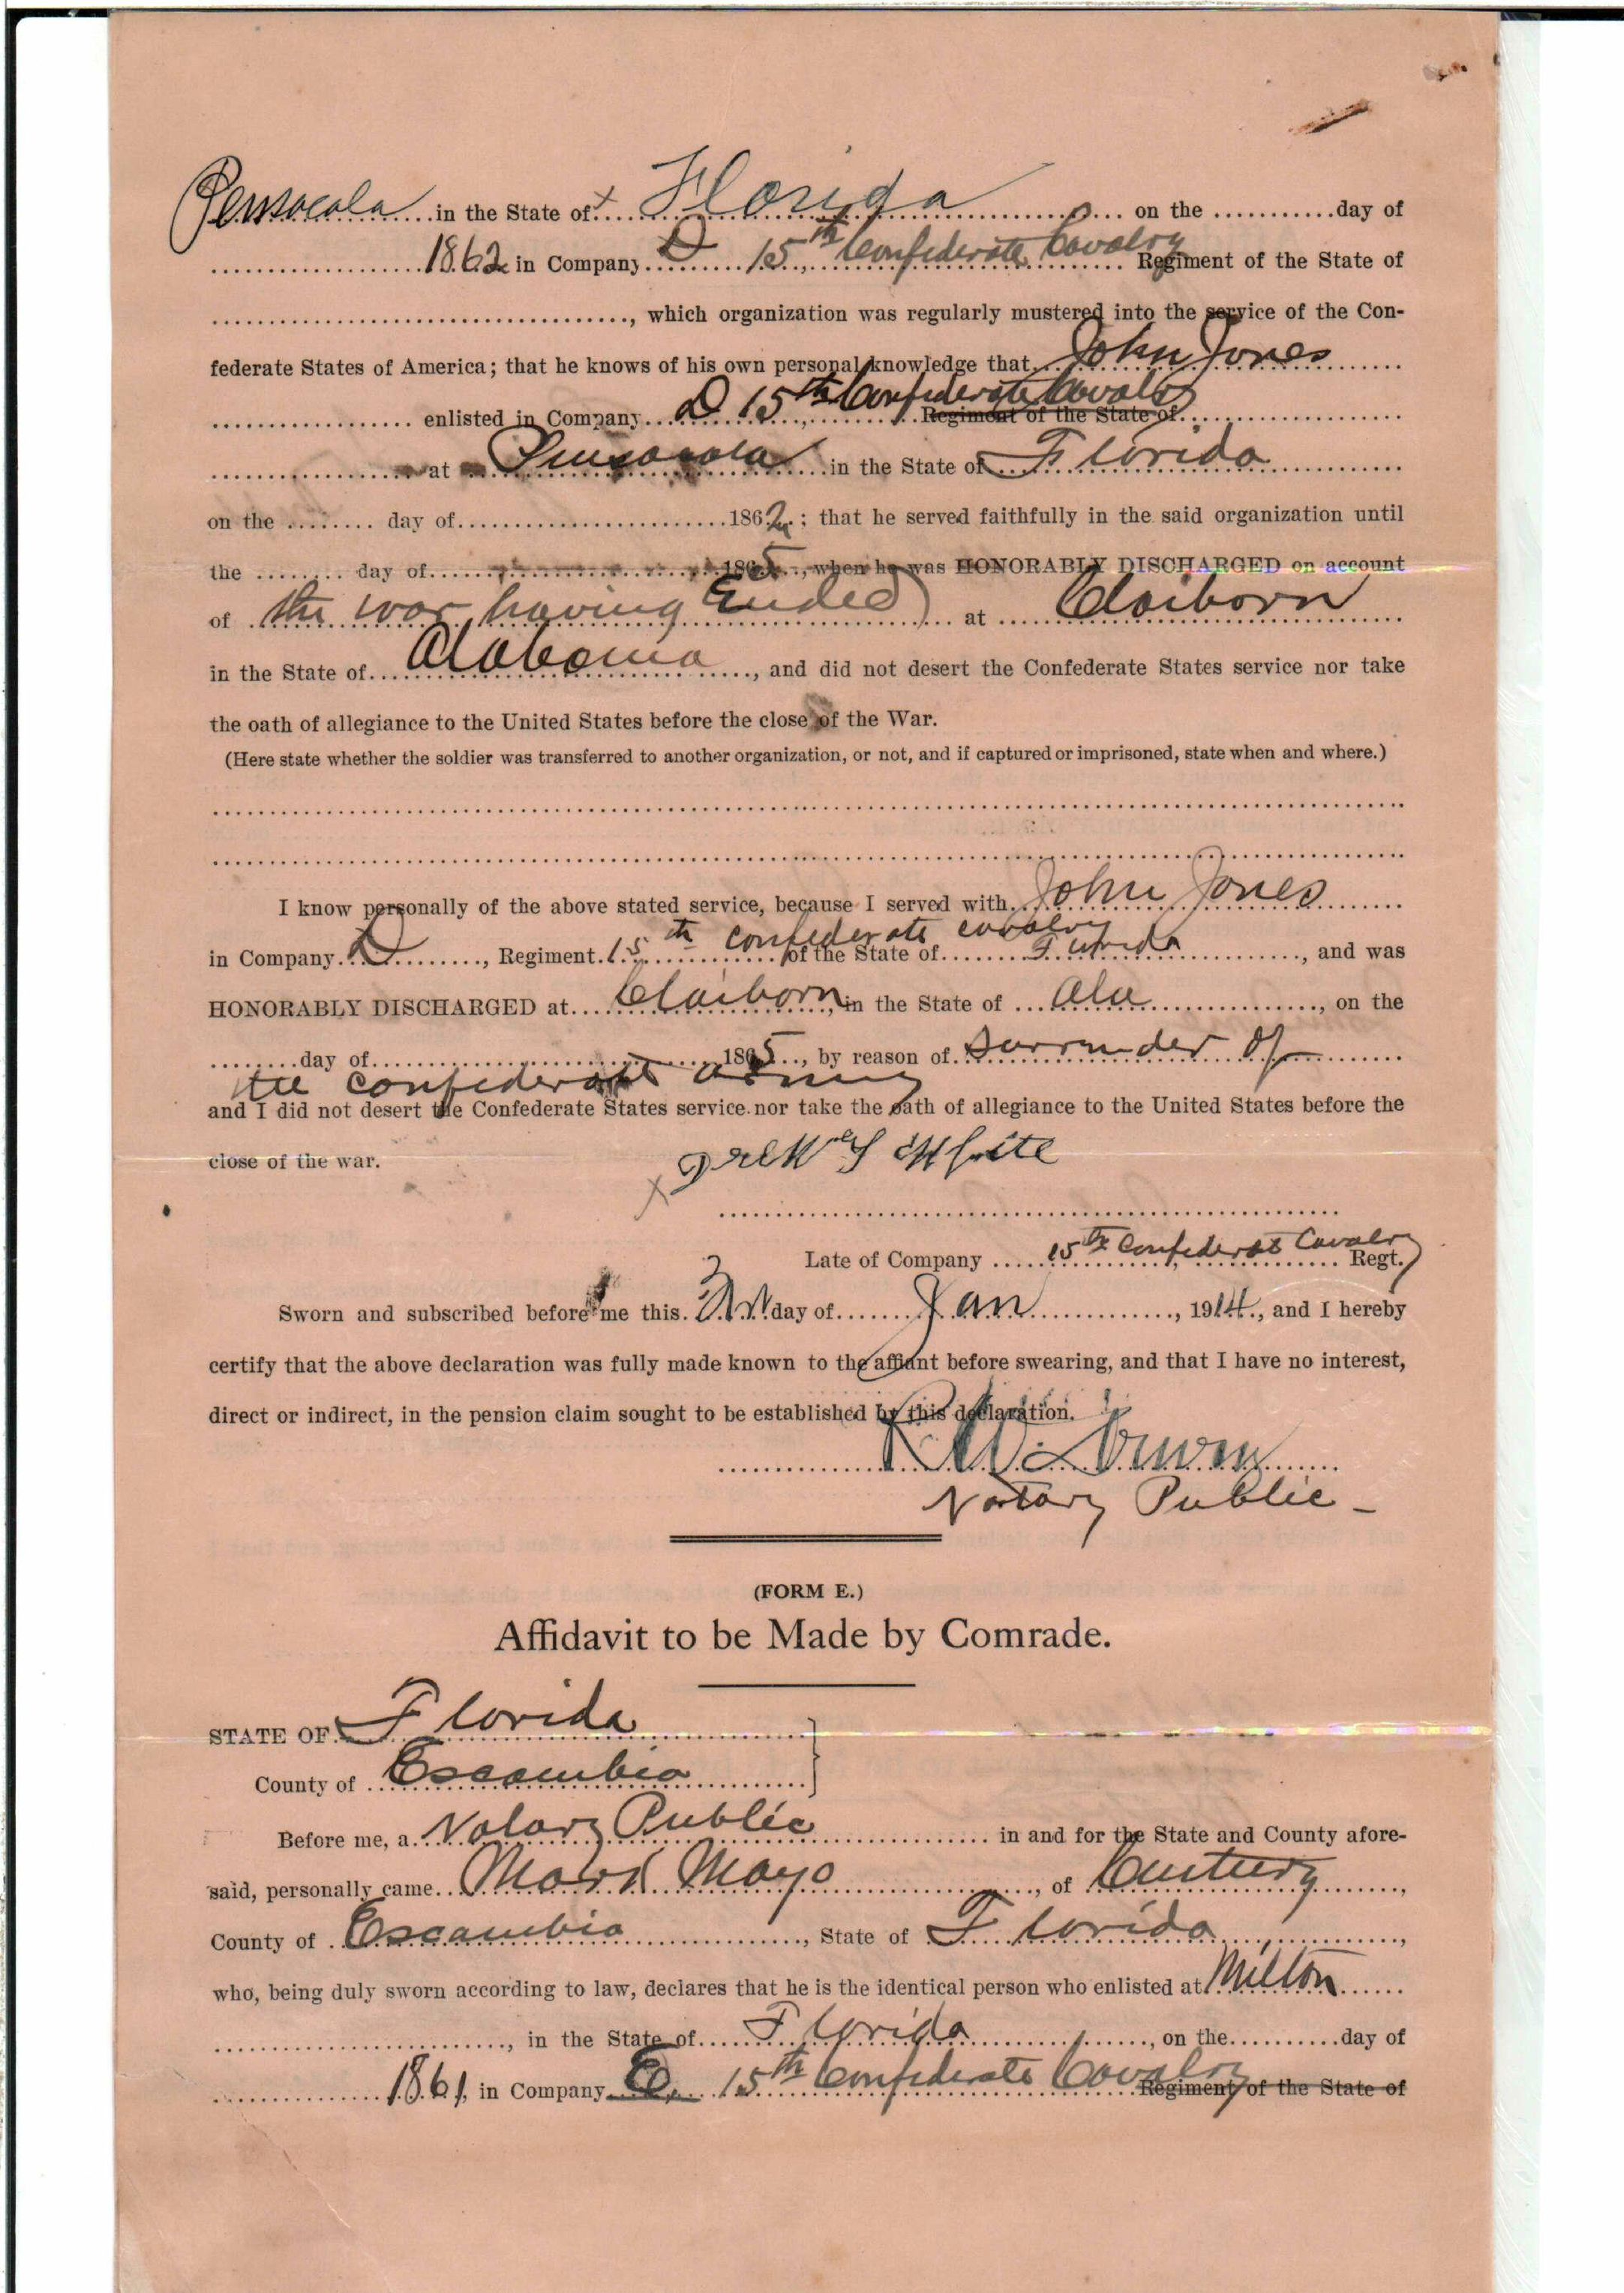 Pensacola in the State of Florida on the ........... day of
1862 in Company D 15th Confederate Cavalry Regiment of the State of
, which organization was regularly mustered into the service of the Con-
federate States of America; that he knows of his own personal knowledge that John Jones
enlisted in Company D 15th Confederate Cavalry Regiment of the State of
at Pensacola in the State of Florida
on the ........ day of ........ 1862 ; that he served faithfully in the said organization until
the ........ day of ........ 1865 , when he was HONORABLY DISCHARGED on account
of the war having Ended at Claiborn
in the State of Alabama , and did not desert the Confederate States service nor take
the oath of allegiance to the United States before the close of the War.
(Here state whether the soldier was transferred to another organization, or not, and if captured or imprisoned, state when and where.)
I know personally of the above stated service, because I served with John Jones
in Company D , Regiment 15th confederate cavalry of the State of Florida , and was
HONORABLY DISCHARGED at Claiborn, in the State of Ala , on the
........ day of ........ 1865 , by reason of Surrunder of
the confederate army
and I did not desert the Confederate States service nor take the oath of allegiance to the United States before the
close of the war.
White
Late of Company 15th Confederate Cavalry Regt.
Sworn and subscribed before me this day of Jan , 1914 , and I hereby
certify that the above declaration was fully made known to the affiant before swearing, and that I have no interest,
direct or indirect, in the pension claim sought to be established by this declaration.
Notary Public -
(FORM E.)
Affidavit to be Made by Comrade.
STATE OF Florida
County of Escambia
Before me, a Notary Public in and for the State and County afore-
said, personally came Mark Mayo , of Century ,
County of Escambia , State of Florida ,
who, being duly sworn according to law, declares that he is the identical person who enlisted at Milton
, in the State of Florida , on the .......... day of
1861, in Company E, 15th Confederate Cavalry Regiment of the State of